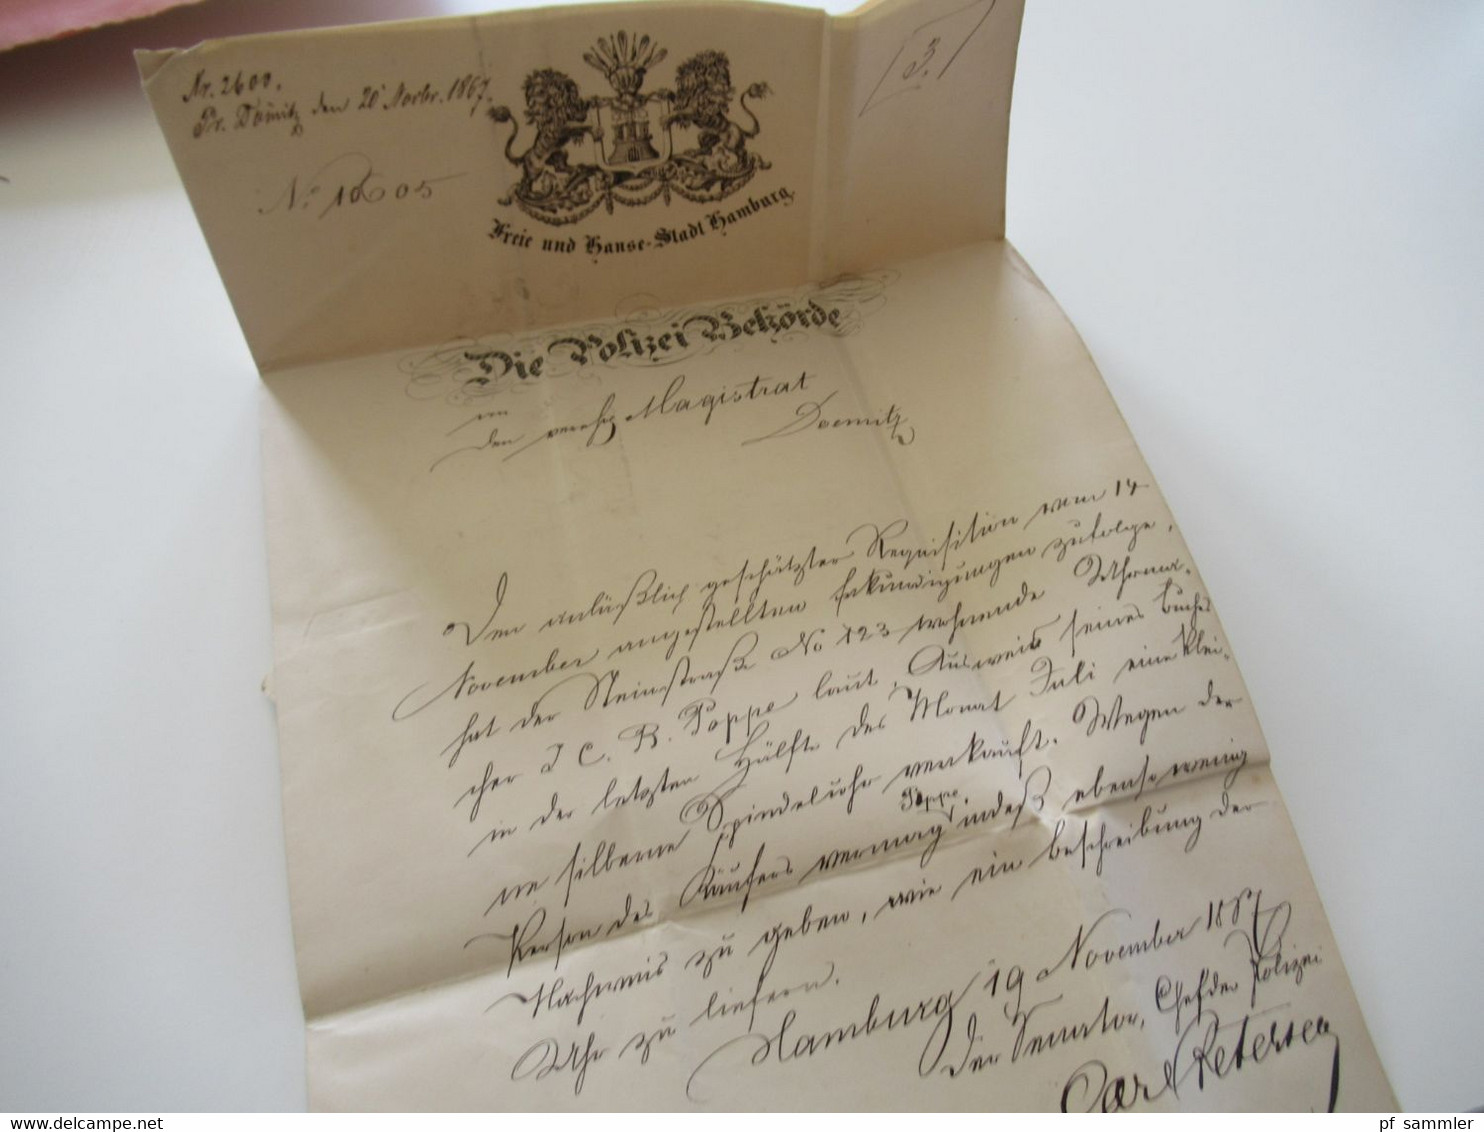 Nr. 2600.
Pr. Dömitz den 20 Novbr. 1867.
3.
No 10605
Freie und Hanse-Stadt Hamburg
Die Polizei Behörde
an
den verehrl Magistrat
Doemitz
Den anläßlich geschätzter Requisition vom 14
November angestellten Erkundigungen zufolge,
hat der Steinstraße No 123 wohnende Uhrma-
cher J. C. B. Poppe laut Ausweis seines Buches
in der letzten Hälfte des Monat Juli eine klei-
ne silberne Spindeluhr verkauft. Wegen der
Person des Käufers vermag Poppe, indeß ebenso wenig
Nachweis zu geben, wie eine Beschreibung der
Uhr zu liefern.
Hamburg 19 November 1867
Der Senator, Chef der Polizei
Carl Petersen
pf_sammler